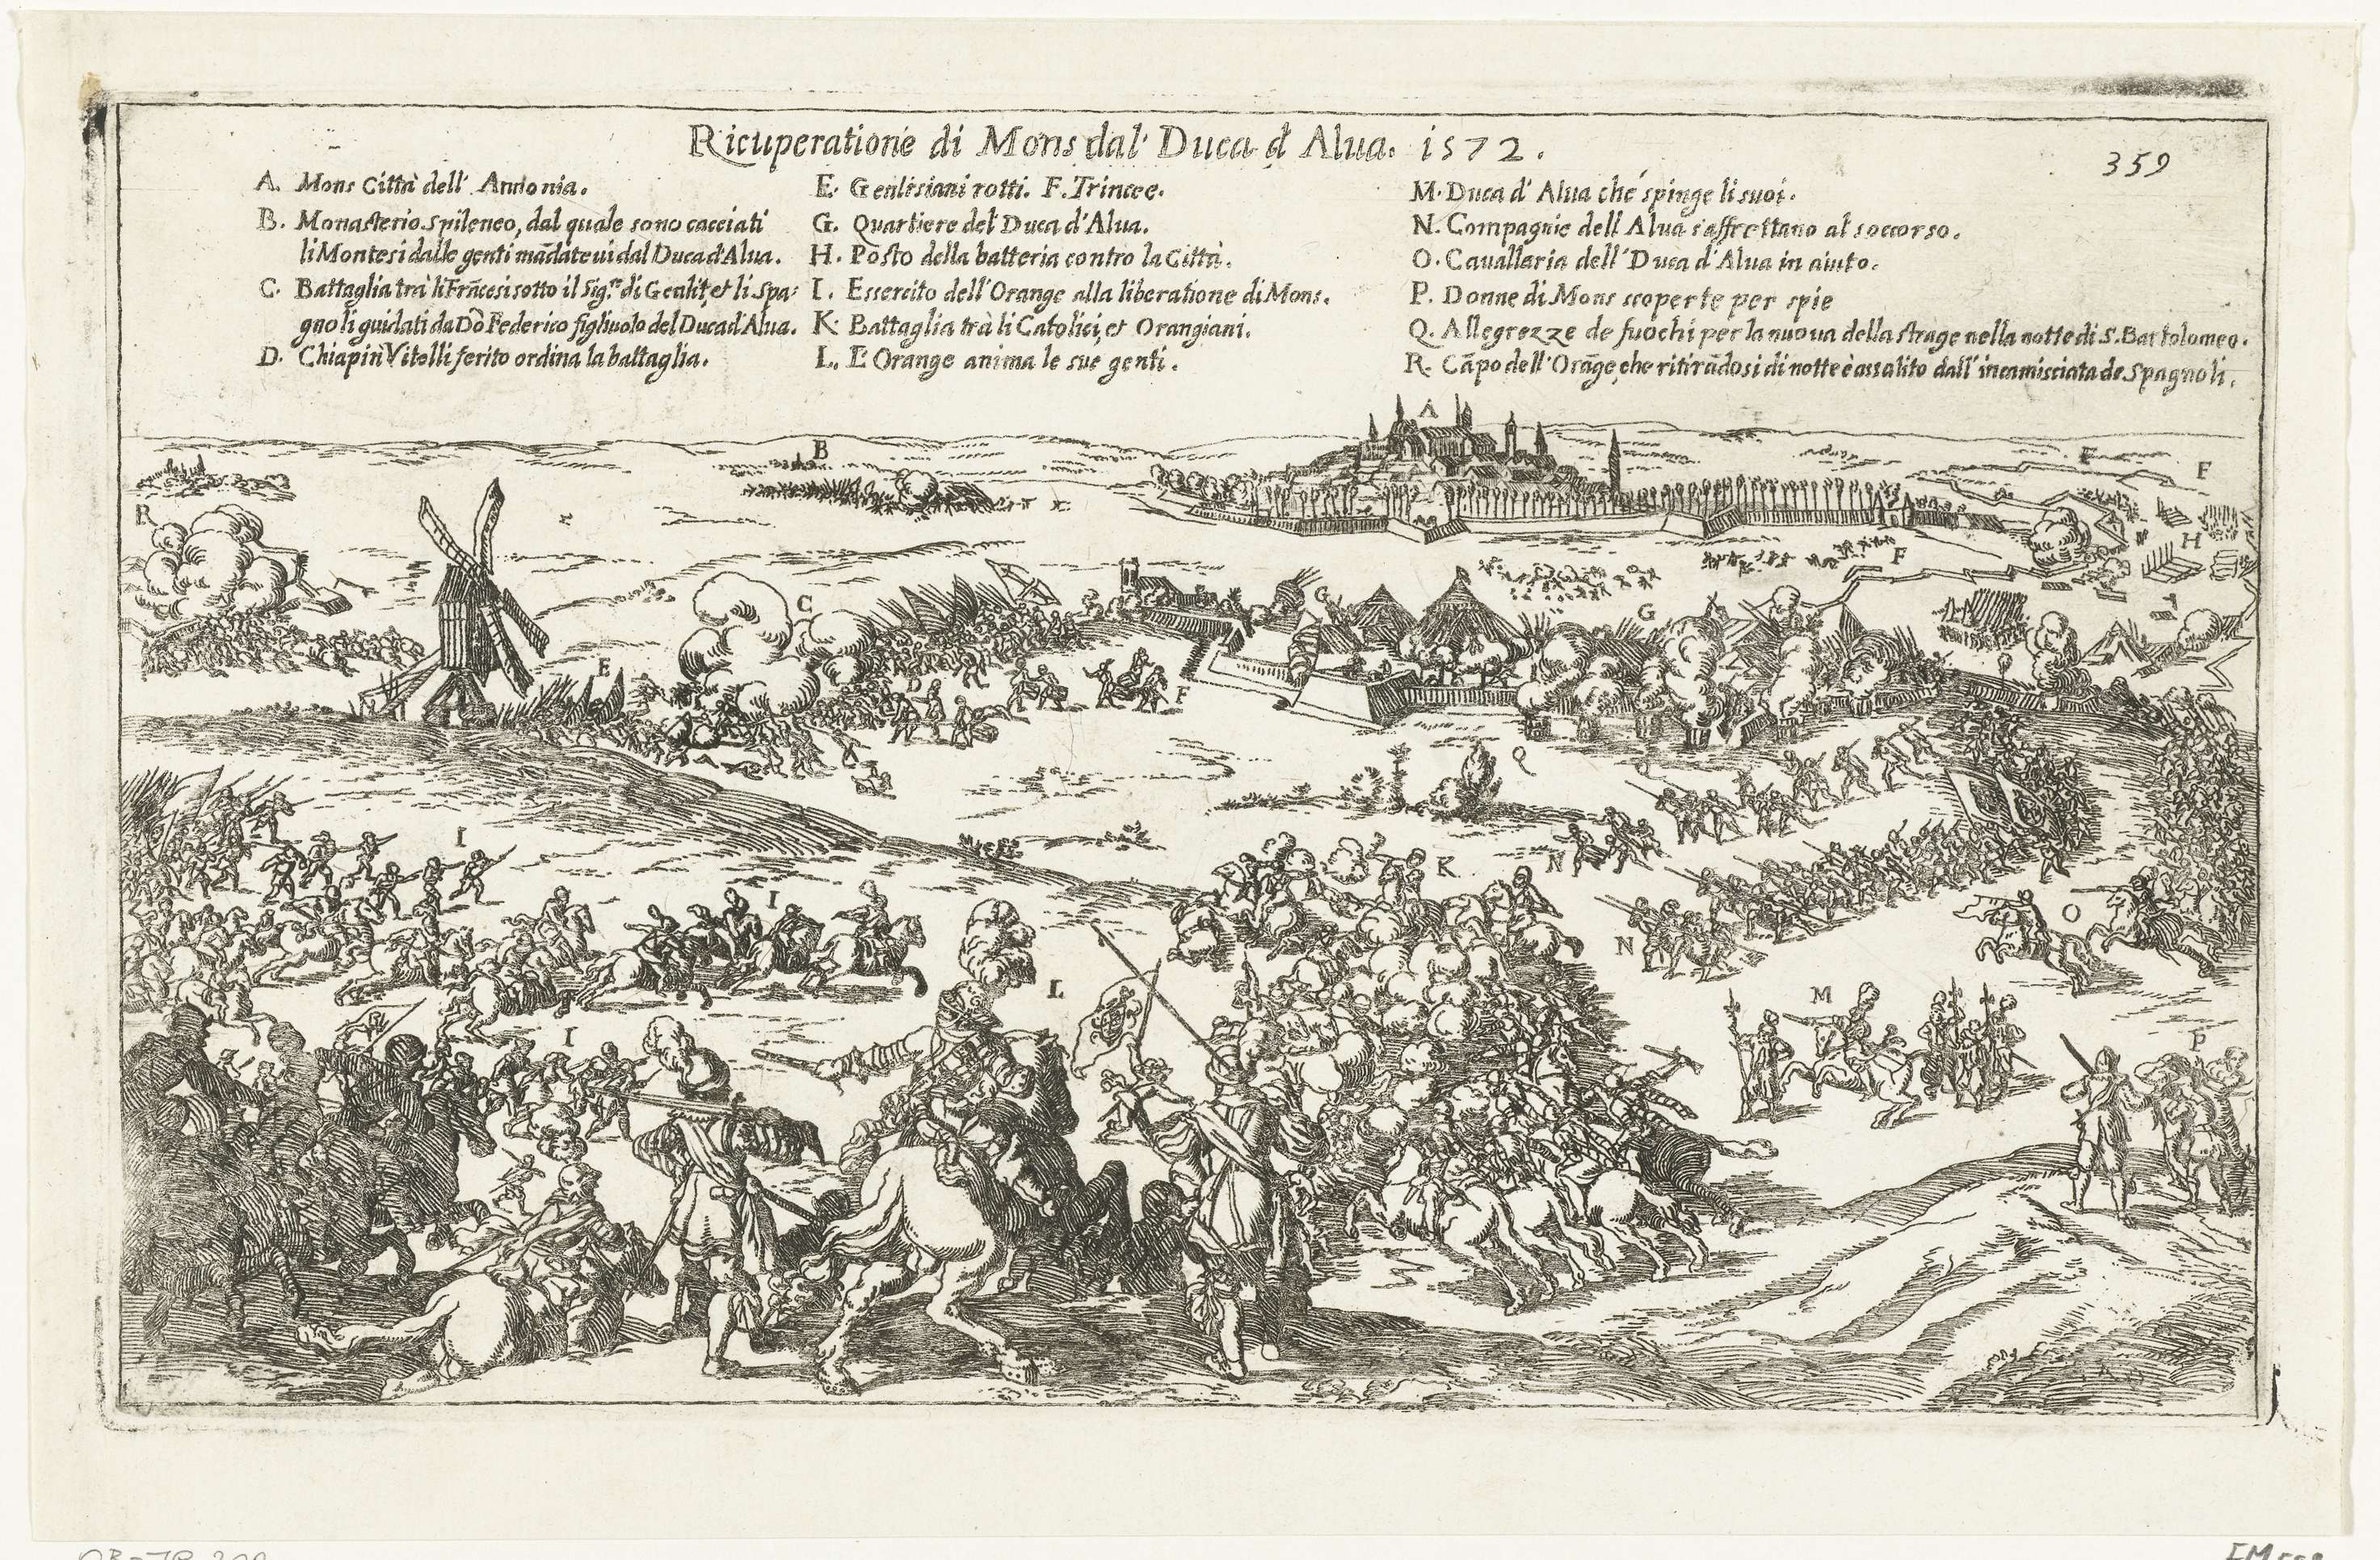 Ricuperatione di Mons dal' Duca d Alua. 1572.
359
A. Mons Città dell' Annonia.
B. Monasterio Spileneo, dal quale sono cacciati
li Montesi dalle genti mādateui dal Duca d'Alua.
C. Battaglia trà li Frācesi sotto il Sig.re di Genlis, et li Spa-
gnoli guidati da Dō Federico figliuolo del Duca d'Alua.
D. Chiapin Vitelli ferito ordina la battaglia.
E. Genlisiani rotti. F. Trincee.
G. Quartiere del Duca d'Alua.
H. Posto della batteria contro la Città.
I. Essercito dell'Orange alla liberatione di Mons.
K. Battaglia trà li Catolici, et Orangiani.
L. L'Orange anima le sue genti.
M. Duca d' Alua che spinge li suoi.
N. Compagnie dell Alua s'affrettano al soccorso.
O. Cauallaria dell'Duca d'Alua in aiuto.
P. Donne di Mons scoperte per spie
Q. Allegrezze de fuochi per la nuoua della strage nella notte di S. Bartolomeo.
R. Cāpo dell'Orāge, che ritirādosi di notte è assalito dall' incamisciata de Spagnoli.
A
B
F
F
R
H
F
C
G
G
E
D
F
Q
I
K
N
I
O
N
L
M
I
P